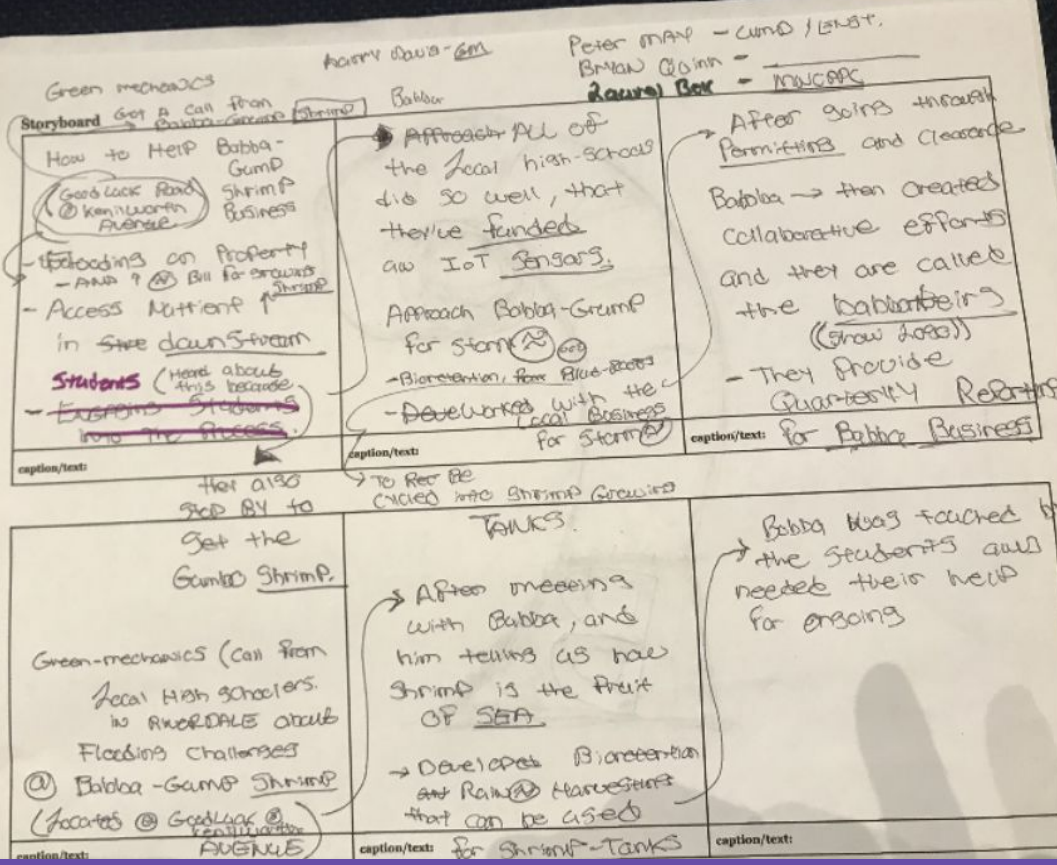 Harry Davis-GM
Peter MAY - CWMD / ENST.
Bryan Quinn -
Laurel Box - MNCAPC
Green mechanics
Got A call from
Babba-Gump Shrimp
Babba
Storyboard
How to Help Babba-
Gump
Shrimp
Business
Good Luck Road
@ Kenilworth
Avenue
- Flooding on Property
- AND ↑ Bill for growing
Shrimp
- Access Nutrient
in downstream
Students (Heard about
this because
- Engaging Students
into the Process.
caption/text:
Approach ALL of
the Local high-schools
did so well, that
they've funded
IoT Sensors.
Approach Babba-Grump
for storm
- Bioretention, Blue-Roofs
- Worked with the
Local Business
for Storm
caption/text:
→ After going through
Permitting and Clearance
Babba → then created
Collaborative efforts
and they are called
the
((Show Logo))
- They Provide
Quarterly Reporting
caption/text: for Babba Business
They also
STOP BY to
get the
Gumbo Shrimp.
Green-mechanics (Call from
Local High Schoolers.
in RIVERDALE about
Flooding Challenges
@ Babba-Gump Shrimp
(Located @ GoodLuck @
Kenilworth
AVENUE)
caption/text:
→ To Be
Cycled into Shrimp Growing
TANKS.
→ After meeting
with Babba, and
him telling us how
Shrimp is the fruit
OF SEA
→ Developed Bioretention
and Rain Harvesting
that can be used
caption/text: for Shrimp-Tanks
→ Babba was touched by
the students and
needed their help
for ongoing
caption/text: